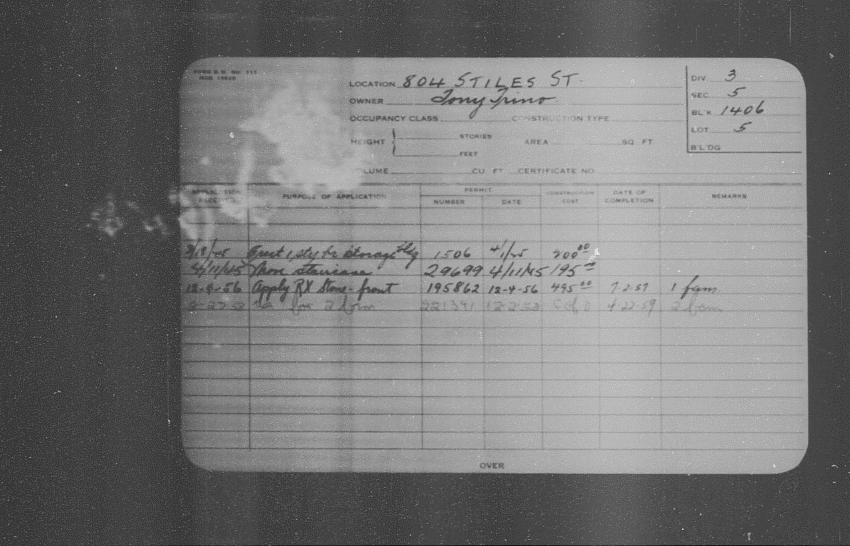 FORM B.D. NO. 111
LOCATION 804 STILES ST.
OWNER Tony Trino
OCCUPANCY CLASS CONSTRUCTION TYPE
HEIGHT STORIES FEET AREA SQ. FT.
VOLUME CU. FT. CERTIFICATE NO.
DIV. 3
SEC. 5
BL'K 1406
LOT 5
B'LDG
APPLICATION RECEIVED PURPOSE OF APPLICATION PERMIT NUMBER DATE CONSTRUCTION COST DATE OF COMPLETION REMARKS
Erect 1 sty br storage bldg 1506 4/1/25
4/11/45 Move staircase 29699 4/11/45 195
12-4-56 Apply RX Stone-front 195862 12-4-56 495 00 7-2-57 1 fam
for 2 fam 221391 C of O 4-22-59 2 fam
OVER